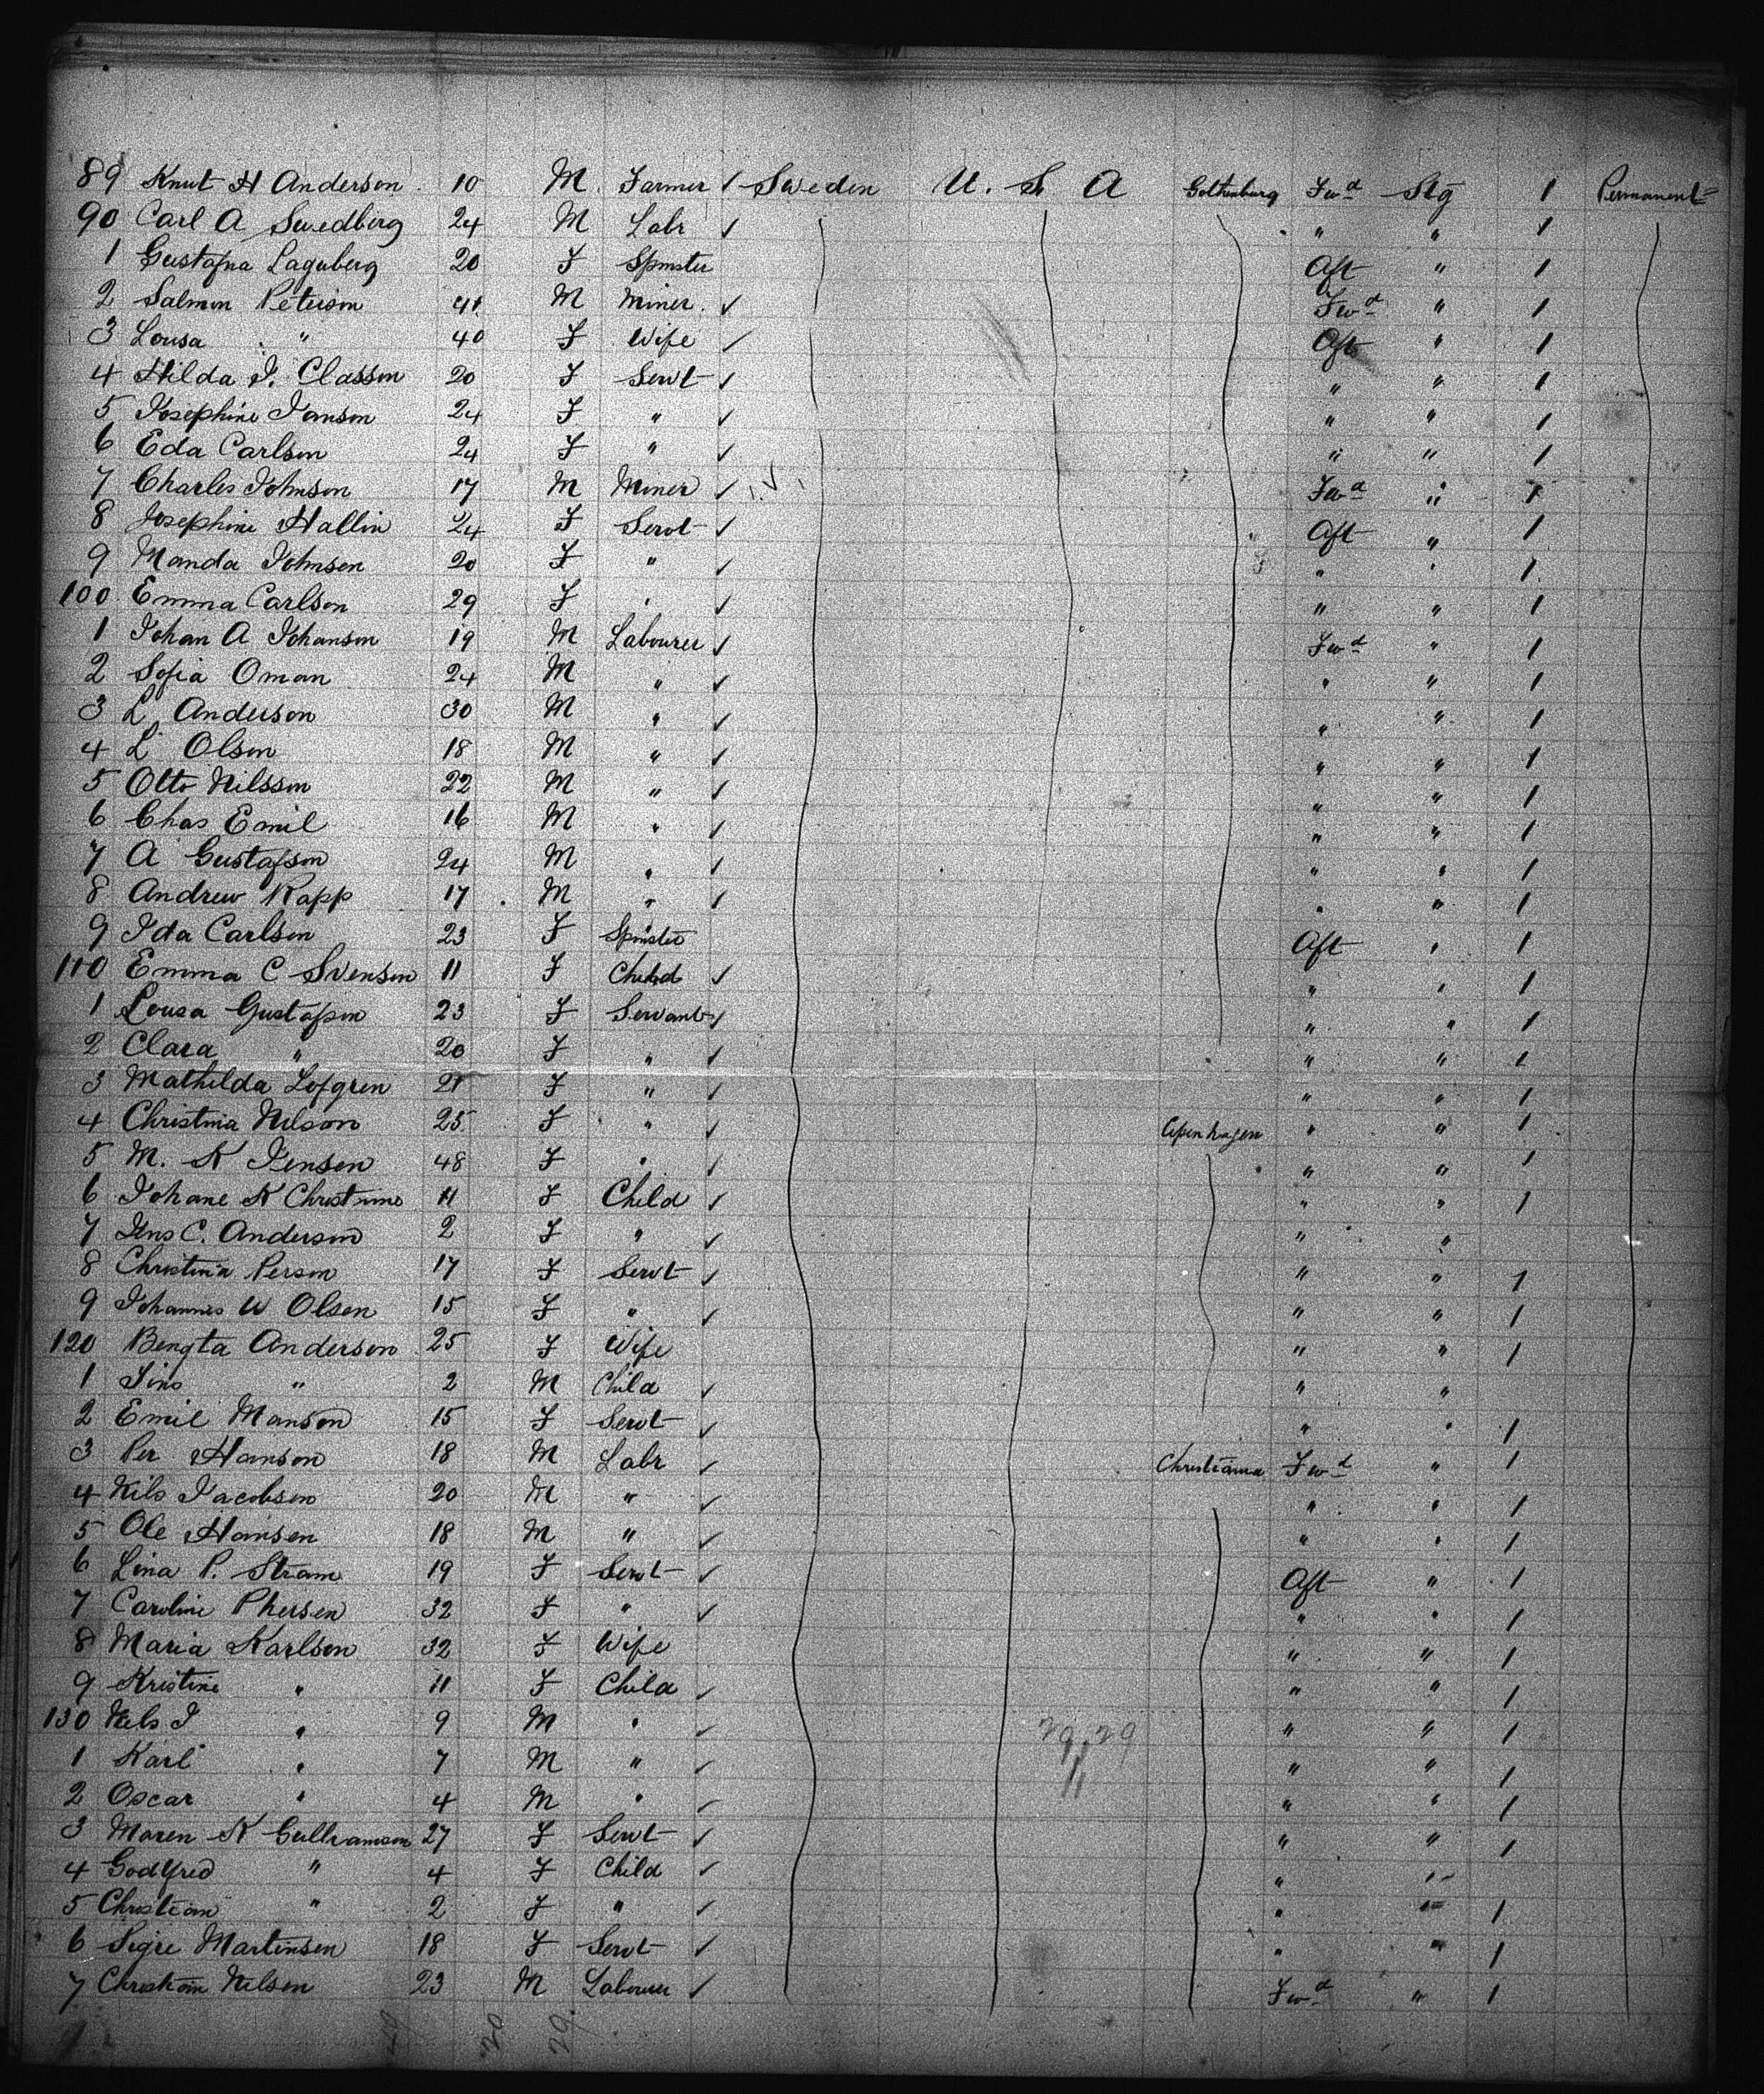 89 Knut H Anderson 10 M. Farmer ✓ Sweden U. S. A Gothenburg Fwd Stg 1 Permanent
90 Carl A Swedberg 24 M Labr ✓ " " 1
1 Gustafna Laguberg 20 F Spinster Aft " 1
2 Salmon Peterson 41 M Miner ✓ Fwd " 1
3 Lousa " 40 F Wife ✓ Aft " 1
4 Hilda J. Classon 20 F Servt ✓ " " 1
5 Josephine Janson 24 F " ✓ " " 1
6 Eda Carlson 24 F " ✓ " " 1
7 Charles Johnson 17 M Miner ✓ Fwd " 1
8 Josephine Hallin 24 F Servt ✓ Aft " 1
9 Manda Johnson 20 F " ✓ " " 1
100 Emma Carlson 29 F " ✓ " " 1
1 Johan A Johanson 19 M Labourer ✓ Fwd " 1
2 Sofia Oman 24 M " ✓ " " 1
3 L Anderson 30 M " ✓ " " 1
4 L Olson 18 M " ✓ " " 1
5 Otto Nilsson 22 M " ✓ " " 1
6 Chas Emil 16 M " ✓ " " 1
7 A Gustafson 24 M " ✓ " " 1
8 Andrew Rapp 17 M " ✓ " " 1
9 Ida Carlson 23 F Spinster Aft " 1
110 Emma C Svenson 11 F Child ✓ " " 1
1 Lousa Gustafson 23 F Servant ✓ " " 1
2 Clara " 20 F " ✓ " " 1
3 Mathilda Lofgren 21 F " ✓ " " 1
4 Christina Nilson 25 F " ✓ Copenhagen " " 1
5 M. K Jensen 48 F " ✓ " " 1
6 Johane K 11 F Child ✓ " " 1
7 Jens C. Anderson 2 F " ✓ " "
8 Christina Person 17 F Servt ✓ " " 1
9 Johannes W Olsen 15 F " ✓ " " 1
120 Bengta Anderson 25 F Wife " " 1
1 " 2 M Child ✓ " "
2 Emil Manson 15 F Servt ✓ " " 1
3 Per Hanson 18 M Labr ✓ Christiania Fwd " 1
4 Nils Jacobsen 20 M " ✓ " " 1
5 Ole Hansen 18 M " ✓ " " 1
6 Lina P. Stram 19 F Servt ✓ Aft " 1
7 Caroline Phersen 32 F " ✓ " " 1
8 Maria Karlsen 32 F Wife " " 1
9 Kristine " 11 F Child ✓ " " 1
130 Nils J " 9 M " ✓ " " 1
1 Karl " 7 M " ✓ " " 1
2 Oscar " 4 M " ✓ " " 1
3 Maren K 27 F Servt ✓ " " 1
4 Godfred " 4 F Child ✓ " "
5 Christian " 2 F " ✓ " " 1
6 Sigre Martinsen 18 F Servt ✓ " " 1
7 Christian Nilsen 23 M Labourer ✓ Fwd " 1
20 29